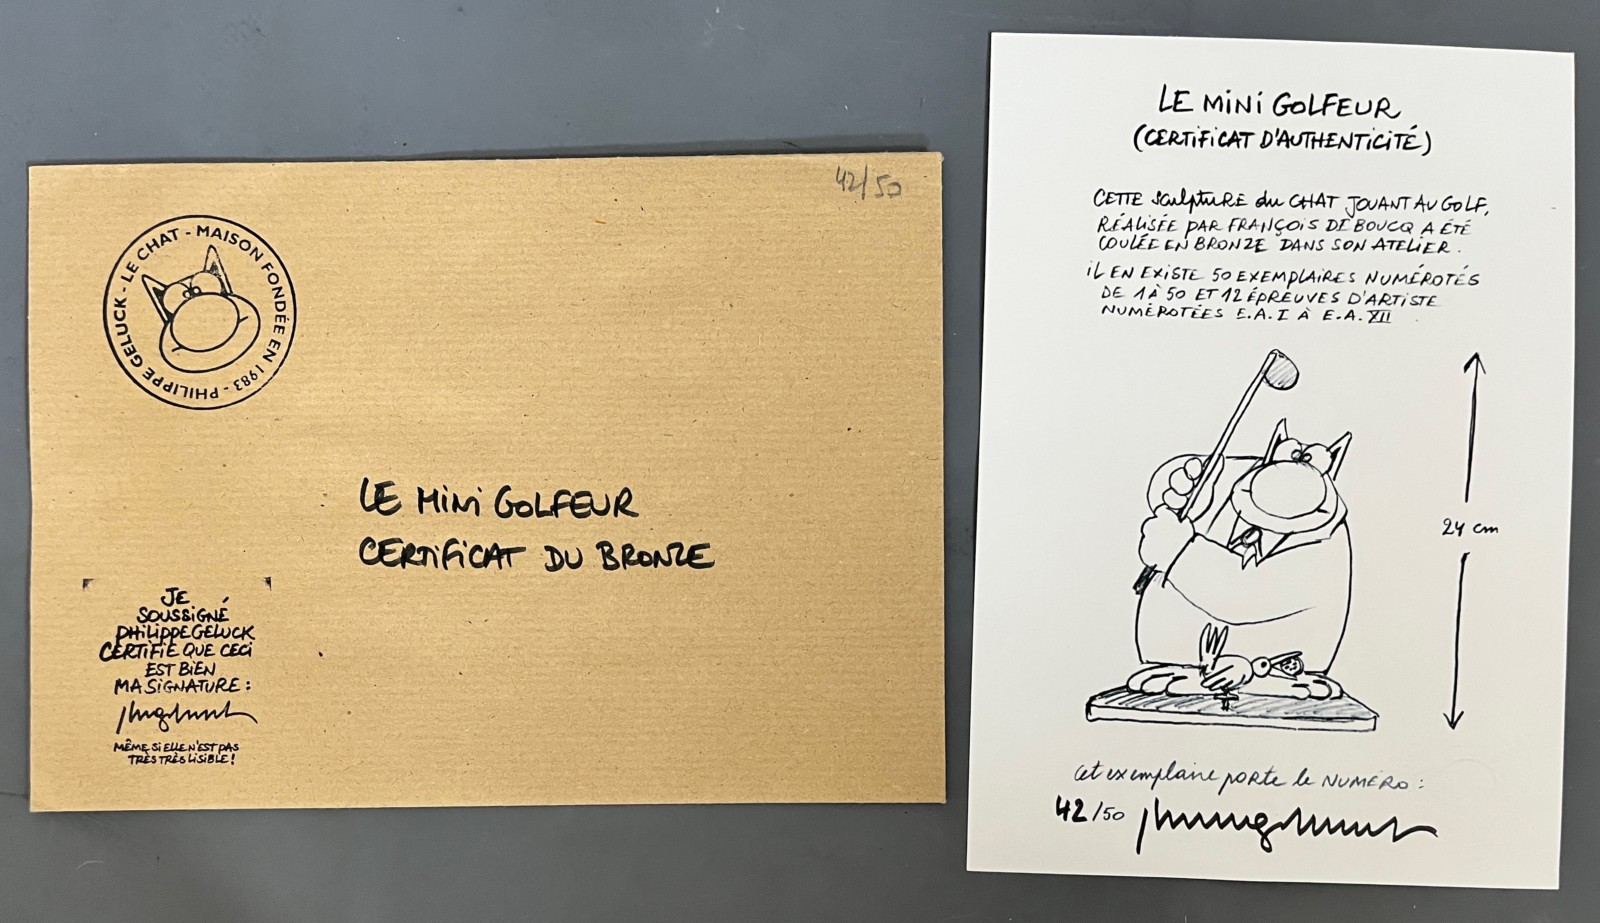 42/50
PHILIPPE GELUCK - LE CHAT - MAISON FONDÉE EN 1983 -
LE MINI GOLFEUR
CERTIFICAT DU BRONZE
JE
SOUSSIGNÉ
PHILIPPE GELUCK
CERTIFIE QUE CECI
EST BIEN
MA SIGNATURE :
MÊME SI ELLE N'EST PAS
TRÈS TRÈS LISIBLE !
LE MINI GOLFEUR
(CERTIFICAT D'AUTHENTICITÉ)
CETTE sculpTURE du CHAT JOUANT AU GOLF,
RÉALISÉE PAR FRANÇOIS DEBOUCQ A ÉTÉ
COULÉE EN BRONZE DANS SON ATELIER.
iL EN EXISTE 50 EXEMPLAIRES NUMÉROTÉS
DE 1 À 50 ET 12 ÉPREUVES D'ARTISTE
NUMÉROTÉES E.A. I À E.A. XII
24 cm
Cet exemplaire porte le NUMÉRO :
42/50